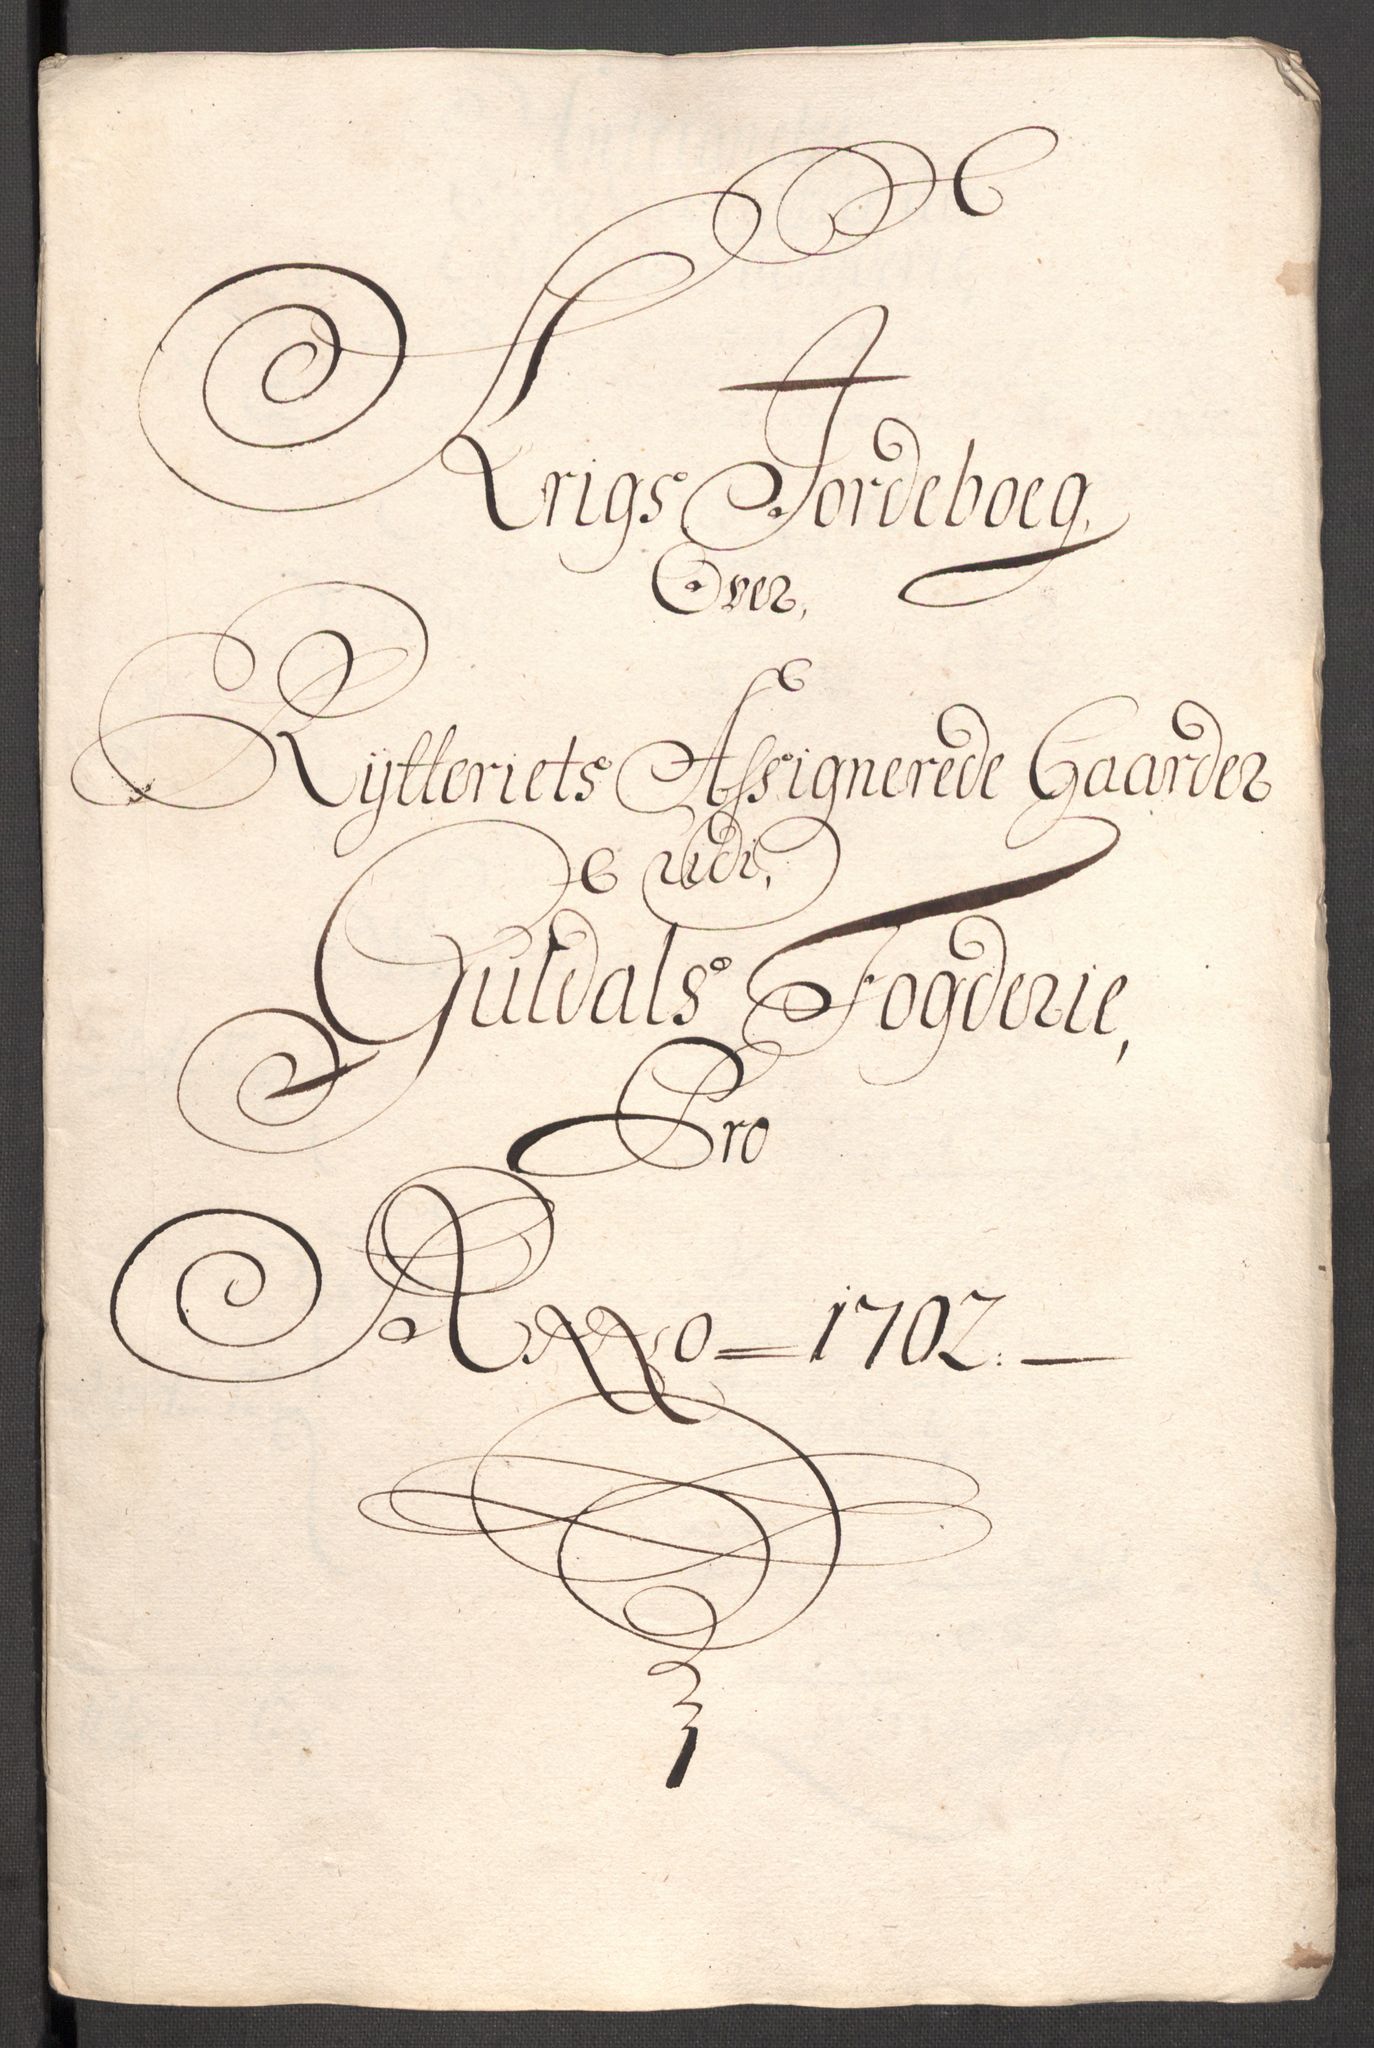 Krigs Jordeboeg,
Over,
Rÿtteriets Assignerede Gaarder
udi,
Guldals Fogderie,
Pro
Anno = 1702. —